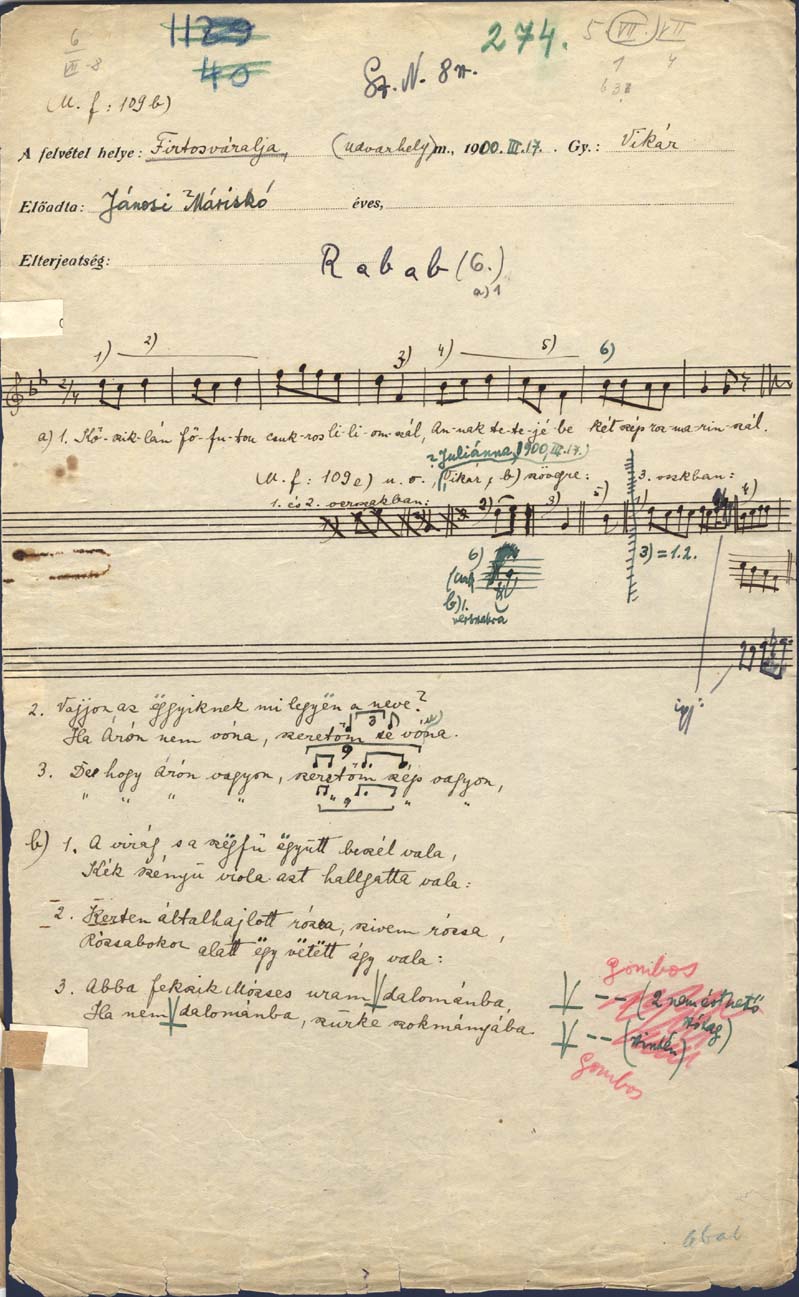 6
VII-8
1129
40
Sz. N. 8sz.
274.
5 VII VII
1 4
6
(M. f: 109b)
A felvétel helye: Firtosváralja, (Udvarhely)m., 1900.III.17. Gy.: Vikár
Előadta: Jánosi Máriskó éves,
Elterjeatség: Rabab (6.)
a) 1
1) 2) 3) 4) 5) 6)
2/4
a) 1. Kő-szik-lán fö-fu-tou csuk-ros li-li-om-szál, An-nak te-te-jé-be két szép ro-ma-rin-szál.
? Juliánna, 1900, III. 17.)
M. f: 109e) u. o., Vikár, b) szövgre: 3. vszkban:
1. és 2. verszakban: 2) 3) 5) 1) 4)
6)
b) 1.
3) = 1.2.
2. Vajjon az ëggyiknek mi legyën a neve?
Ha Árón nem vóna, szeretőm së vóna.
3
9
3. De hogy Árón vagyon, szeretőm szép vagyon,
" " " " " 9 " "
igy:
b) 1. A virág s a szëgfű ëgyütt beszél vala,
Kék szényű viola azt hallgatta vala:
2. Kerten általhajlott rózsa, szivem rózsa,
Rózsabokor alatt ëgy vetëtt ágy vala:
3. Abba fekszik Mózses uram V dalománba,
Ha nem V dalománba, szürke szokmányába.
Gombos
V -- (2 nem érthető
szótag)
V -- (szintén)
Gombos
abab